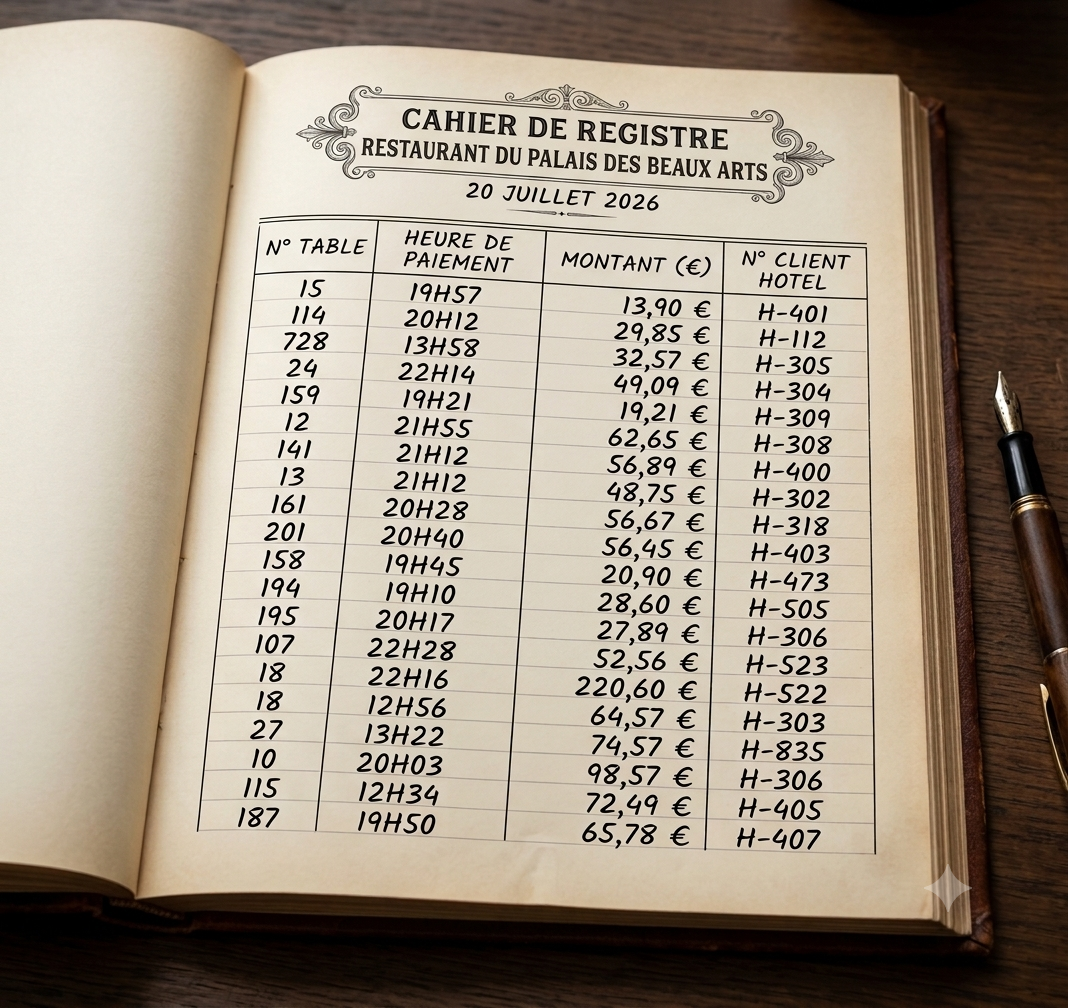 CAHIER DE REGISTRE
RESTAURANT DU PALAIS DES BEAUX ARTS
20 JUILLET 2026
N° TABLE HEURE DE PAIEMENT MONTANT (€) N° CLIENT HOTEL
15 19H57 13,90 € H-401
114 20H12 29,85 € H-112
728 13H58 32,57 € H-305
24 22H14 49,09 € H-304
159 19H21 19,21 € H-309
12 21H55 62,65 € H-308
141 21H12 56,89 € H-400
13 21H12 48,75 € H-302
161 20H28 56,67 € H-318
201 20H40 56,45 € H-403
158 19H45 20,90 € H-473
194 19H10 28,60 € H-505
195 20H17 27,89 € H-306
107 22H28 52,56 € H-523
18 22H16 220,60 € H-522
18 12H56 64,57 € H-303
27 13H22 74,57 € H-835
10 20H03 98,57 € H-306
115 12H34 72,49 € H-405
187 19H50 65,78 € H-407